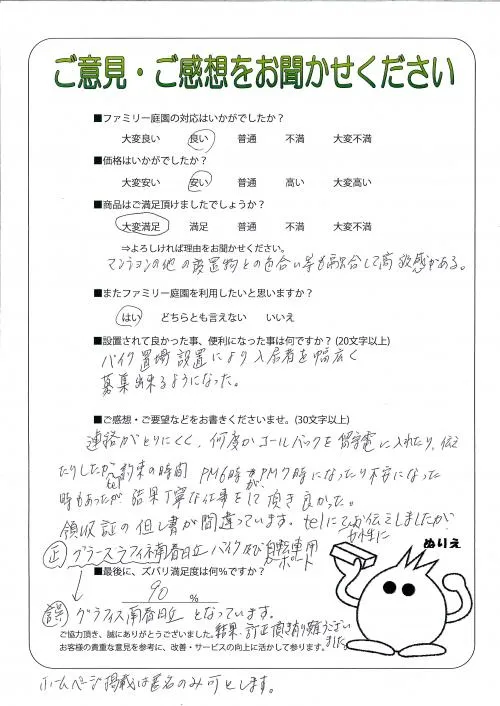 ご意見・ご感想をお聞かせください
■ファミリー庭園の対応はいかがでしたか？
大変良い　良い　普通　不満　大変不満
■価格はいかがでしたか？
大変安い　安い　普通　高い　大変高い
■商品はご満足頂けましたでしょうか？
大変満足　満足　普通　不満　大変不満
⇒よろしければ理由をお聞かせください。
マンションの他の設置物との色合い等も融合して高級感がある。
■またファミリー庭園を利用したいと思いますか？
はい　どちらとも言えない　いいえ
■設置されて良かった事、便利になった事は何ですか？(20文字以上)
バイク置場設置により入居者を幅広く
募集出来るようになった。
■ご感想・ご要望などをお書きくださいませ。(30文字以上)
連絡がとりにくく、何度かコールバックを留守電に入れたり、伝え
たりしたが、tel約束の時間 PM6時がPM7時になったり不安になった
時もあったが 結果丁寧な仕事をして頂き良かった。
領収証の但し書が間違っています。telにてお伝えしましたが
女性に
正 グラースラフィネ南春日丘 バイク及び自転車用
カーポート
ぬりえ
■最後に、ズバリ満足度は何％ですか？
90 ％
誤 グラフィス南春日丘 となっています。
結果、訂正頂き有難うござい
ました。
ご協力頂き、誠にありがとうございました。
お客様の貴重な意見を参考に、改善・サービスの向上に活かして参ります。
ホームページ掲載は匿名のみ可とします。